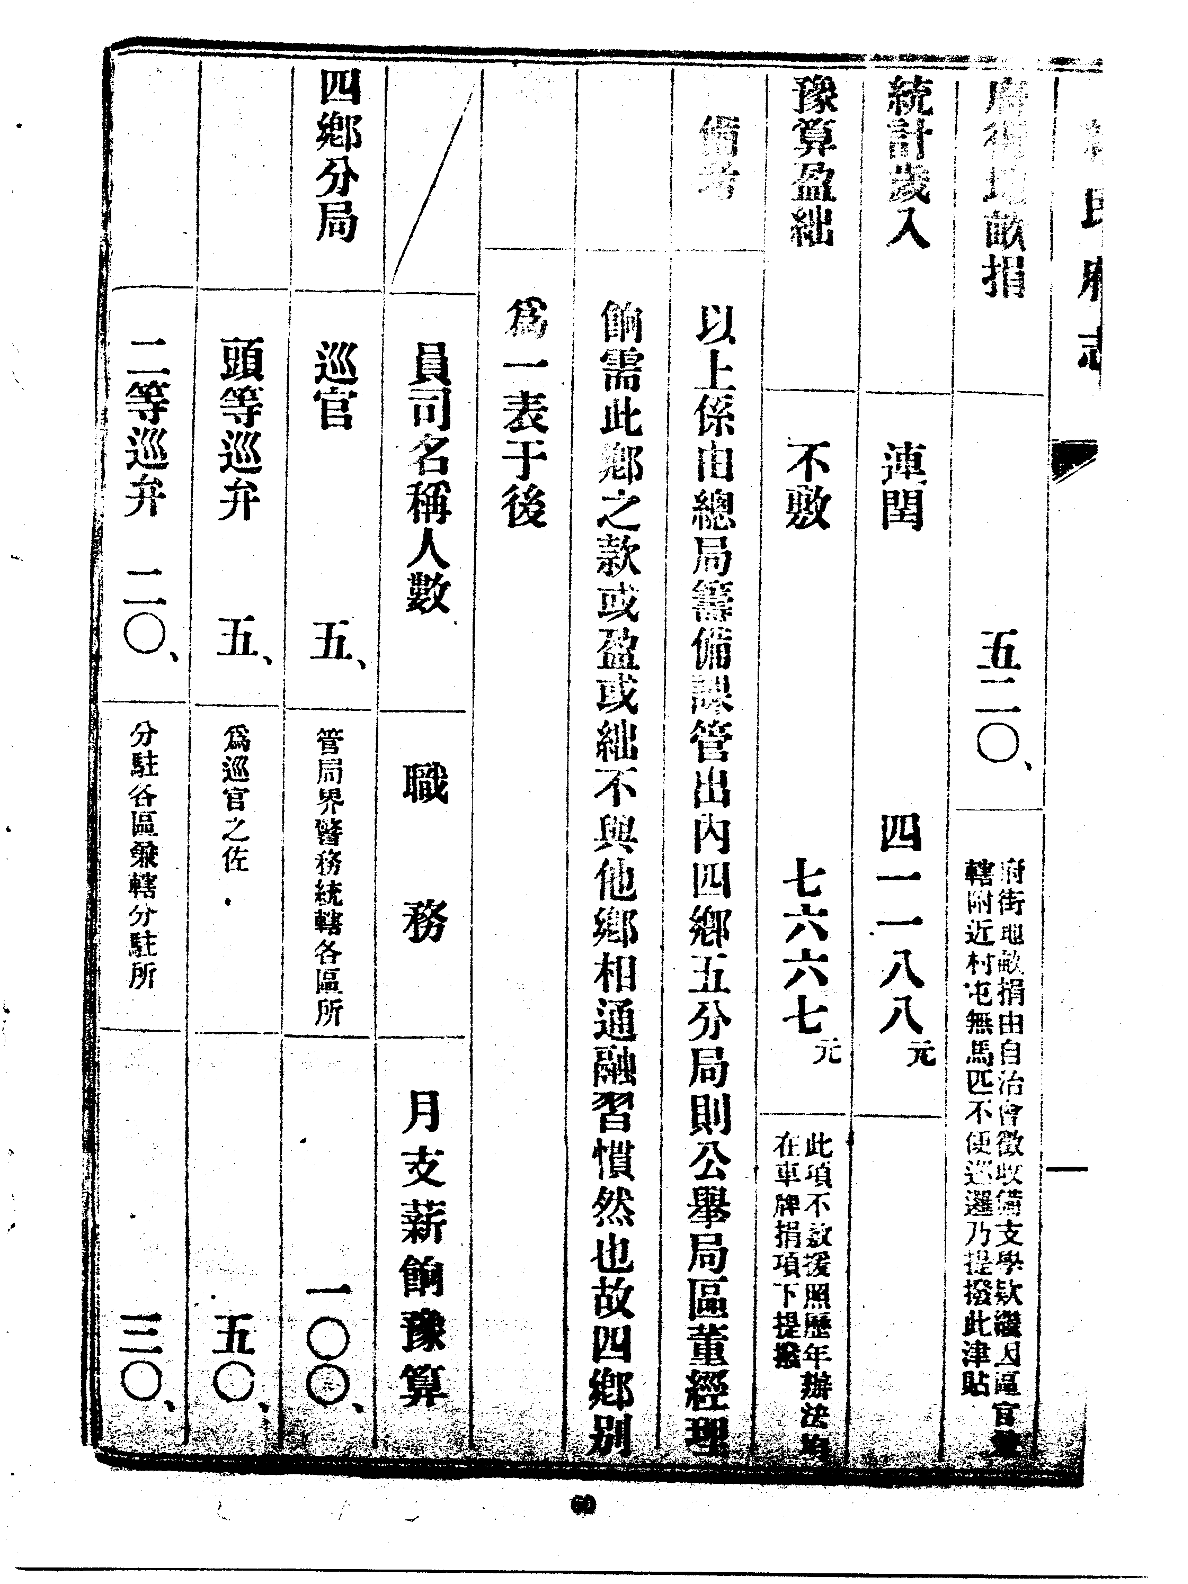 民府志
府街地畝捐 五二〇、 府街地畝捐由自治會徵收備支學欵繼因區官兼
轄附近村屯無馬匹不便巡邏乃提撥此津貼
統計歲入 連閏 四一一八八元
豫算盈絀 不敷 七六六七元 此項不敷援照歷年辦法均
在車牌捐項下提撥
備考 以上係由總局籌備課管出內四鄉五分局則公舉局區董經理
餉需此鄉之款或盈或絀不與他鄉相通融習慣然也故四鄉別
爲一表于後
員司名稱人數 職務 月支薪餉豫算
四鄉分局 巡官 五、 管局界警務統轄各區所 一〇〇、
頭等巡弁 五、 爲巡官之佐 五〇、
二等巡弁 二〇、 分駐各區兼轄分駐所 三〇、
60